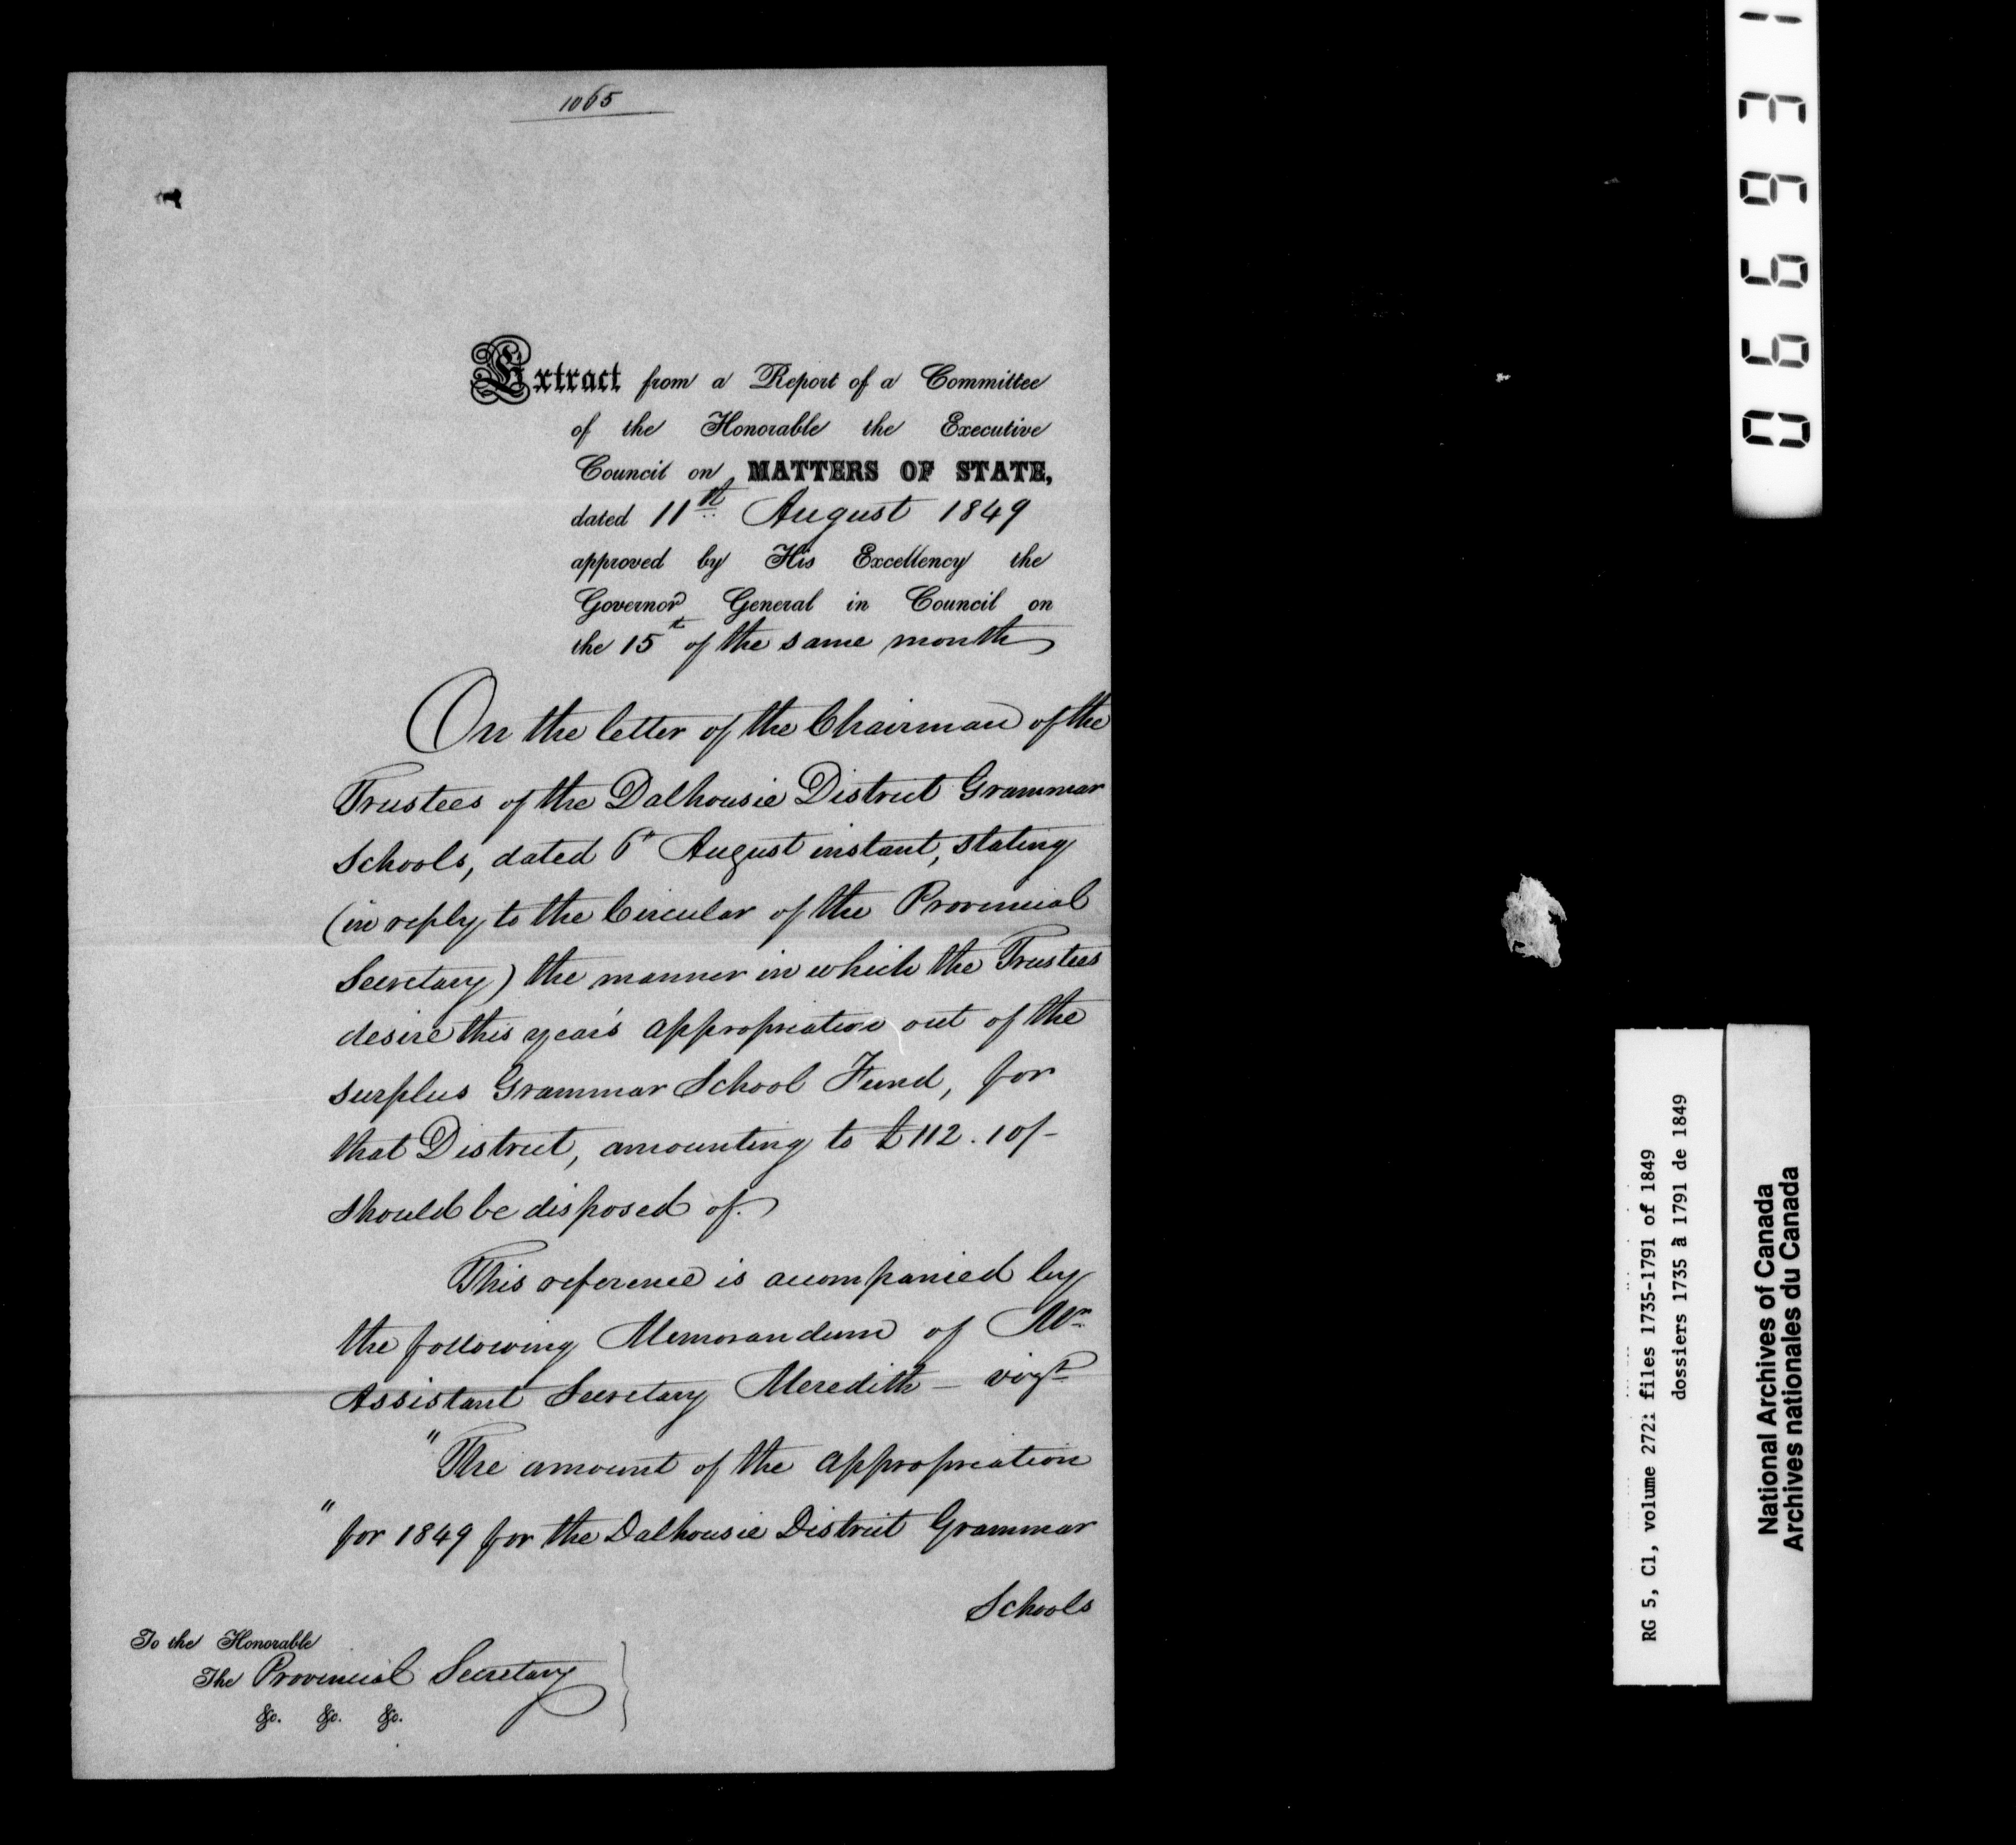 1065
Extract from a Report of a Committee
of the Honorable the Executive
Council on MATTERS OF STATE,
dated 11th August 1849
approved by His Excellency the
Governor General in Council on
the 15th of the same month
On the letter of the Chairman of the
Trustees of the Dalhousie District Grammar
Schools, dated 6th August instant, stating
(in reply to the Circular of the Provincial
Secretary) the manner in which the Trustees
desire this year's appropriation out of the
surplus Grammar School Fund, for
that District, amounting to £112.10/-
should be disposed of.
This reference is accompanied by
the following Memorandum of Mr
Assistant Secretary Meredith — vizt
"The amount of the appropriation
"for 1849 for the Dalhousie District Grammar
Schools
To the Honorable
The Provincial Secretary
&c. &c. &c.
066931
RG 5, C1, volume 272: files 1735-1791 of 1849
dossiers 1735 à 1791 de 1849
National Archives of Canada
Archives nationales du Canada